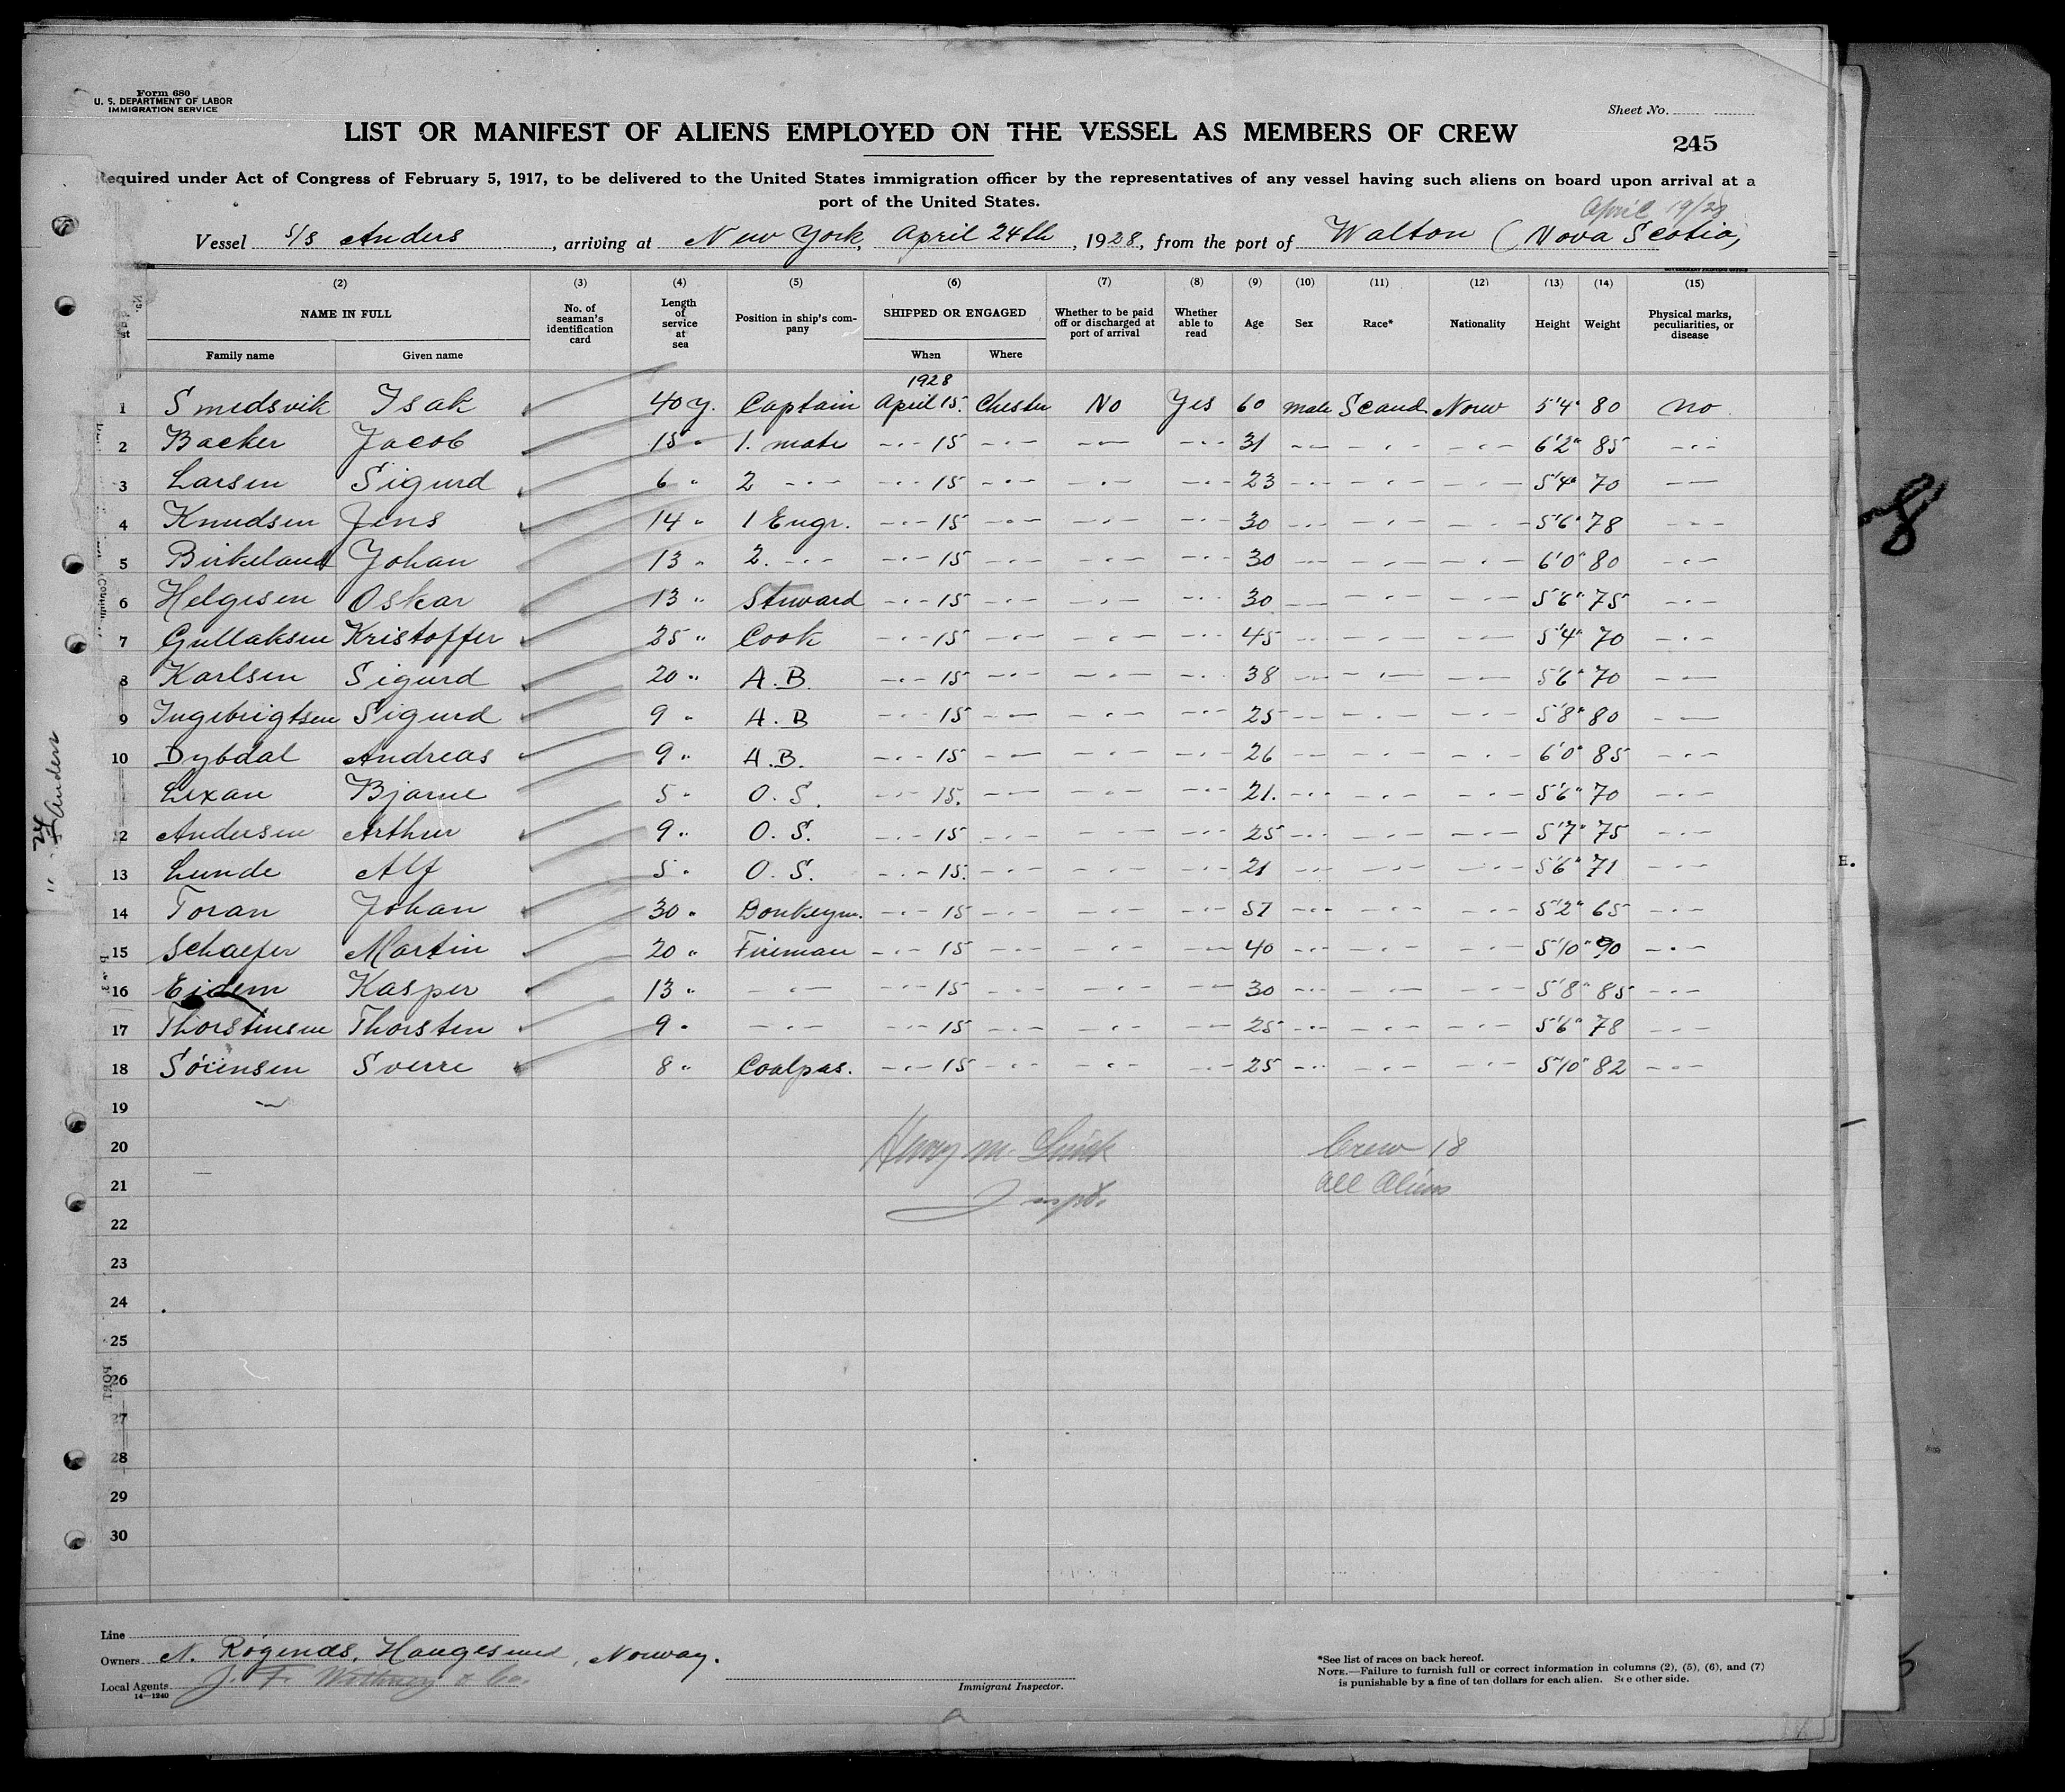 Form 680
U. S. DEPARTMENT OF LABOR
IMMIGRATION SERVICE
Sheet No.
LIST OR MANIFEST OF ALIENS EMPLOYED ON THE VESSEL AS MEMBERS OF CREW
245
Required under Act of Congress of February 5, 1917, to be delivered to the United States immigration officer by the representatives of any vessel having such aliens on board upon arrival at a
port of the United States.
April 19/28
Vessel s/s Anders, arriving at New York, April 24th, 1928, from the port of Walton (Nova Scotia)
(2) (3) (4) (5) (6) (7) (8) (9) (10) (11) (12) (13) (14) (15)
NAME IN FULL No. of seaman's identification card Length of service at sea Position in ship's company SHIPPED OR ENGAGED Whether to be paid off or discharged at port of arrival Whether able to read Age Sex Race* Nationality Height Weight Physical marks, peculiarities, or disease
Family name Given name When Where
1928
1 Smedsvik Isak 40 y. Captain April 15. Chester No Yes 60 male Scand. Norw 5'4" 80 no
2 Backer Jacob 15 " 1. mate -"- 15 -"- -"- -"- 31 -"- -"- -"- 6'2" 85 -"-
3 Larsen Sigurd 6 " 2 -"- -"- 15 -"- -"- -"- 23 -"- -"- -"- 5'4" 70 -"-
4 Knudsen Jens 14 " 1 Engr. -"- 15 -"- -"- -"- 30 -"- -"- -"- 5'6" 78 -"-
5 Birkeland Johan 13 " 2. -"- -"- 15 -"- -"- -"- 30 -"- -"- -"- 6'0" 80 -"-
6 Helgesen Oskar 13 " Steward -"- 15 -"- -"- -"- 30 -"- -"- -"- 5'6" 75 -"-
7 Gullaksen Kristoffer 25 " Cook -"- 15 -"- -"- -"- 45 -"- -"- -"- 5'4" 70 -"-
8 Karlsen Sigurd 20 " A.B. -"- 15 -"- -"- -"- 38 -"- -"- -"- 5'6" 70 -"-
9 Ingebrigtsen Sigurd 9 " A.B -"- 15 -"- -"- -"- 25 -"- -"- -"- 5'8" 80 -"-
10 Dybdal Andreas 9 " A.B. -"- 15 -"- -"- -"- 26 -"- -"- -"- 6'0" 85 -"-
Lexan Bjarne 5 " O.S. -"- 15. -"- -"- -"- 21. -"- -"- -"- 5'6" 70 -"-
12 Andersen Arthur 9 " O.S. -"- 15 -"- -"- -"- 25 -"- -"- -"- 5'7" 75 -"-
13 Lunde Alf 5 " O.S. -"- 15. -"- -"- -"- 21 -"- -"- -"- 5'6" 71 -"-
14 Toran Johan 30 " Donkeym. -"- 15 -"- -"- -"- 57 -"- -"- -"- 5'2" 65 -"-
15 Schaefer Martin 20 " Fireman -"- 15 -"- -"- -"- 40 -"- -"- -"- 5'10" 90 -"-
16 Eidem Kasper 13 " -"- -"- 15 -"- -"- -"- 30 -"- -"- -"- 5'8" 85 -"-
17 Thorstensen Thorsten 9 " -"- -"- 15 -"- -"- -"- 25 -"- -"- -"- 5'6" 78 -"-
18 Sörensen Sverre 8 " Coalpas. -"- 15 -"- -"- -"- 25 -"- -"- -"- 5'10" 82 -"-
19
20 Henry Crew 18
21 Inspt. All Aliens
22
23
24
25
26
27
28
29
30
24 Anders
Line
Owners N. Rogenæs, Haugesund, Norway.
Local Agents J. F. & Co.
14—1240
Immigrant Inspector.
*See list of races on back hereof.
NOTE.—Failure to furnish full or correct information in columns (2), (5), (6), and (7)
is punishable by a fine of ten dollars for each alien. See other side.